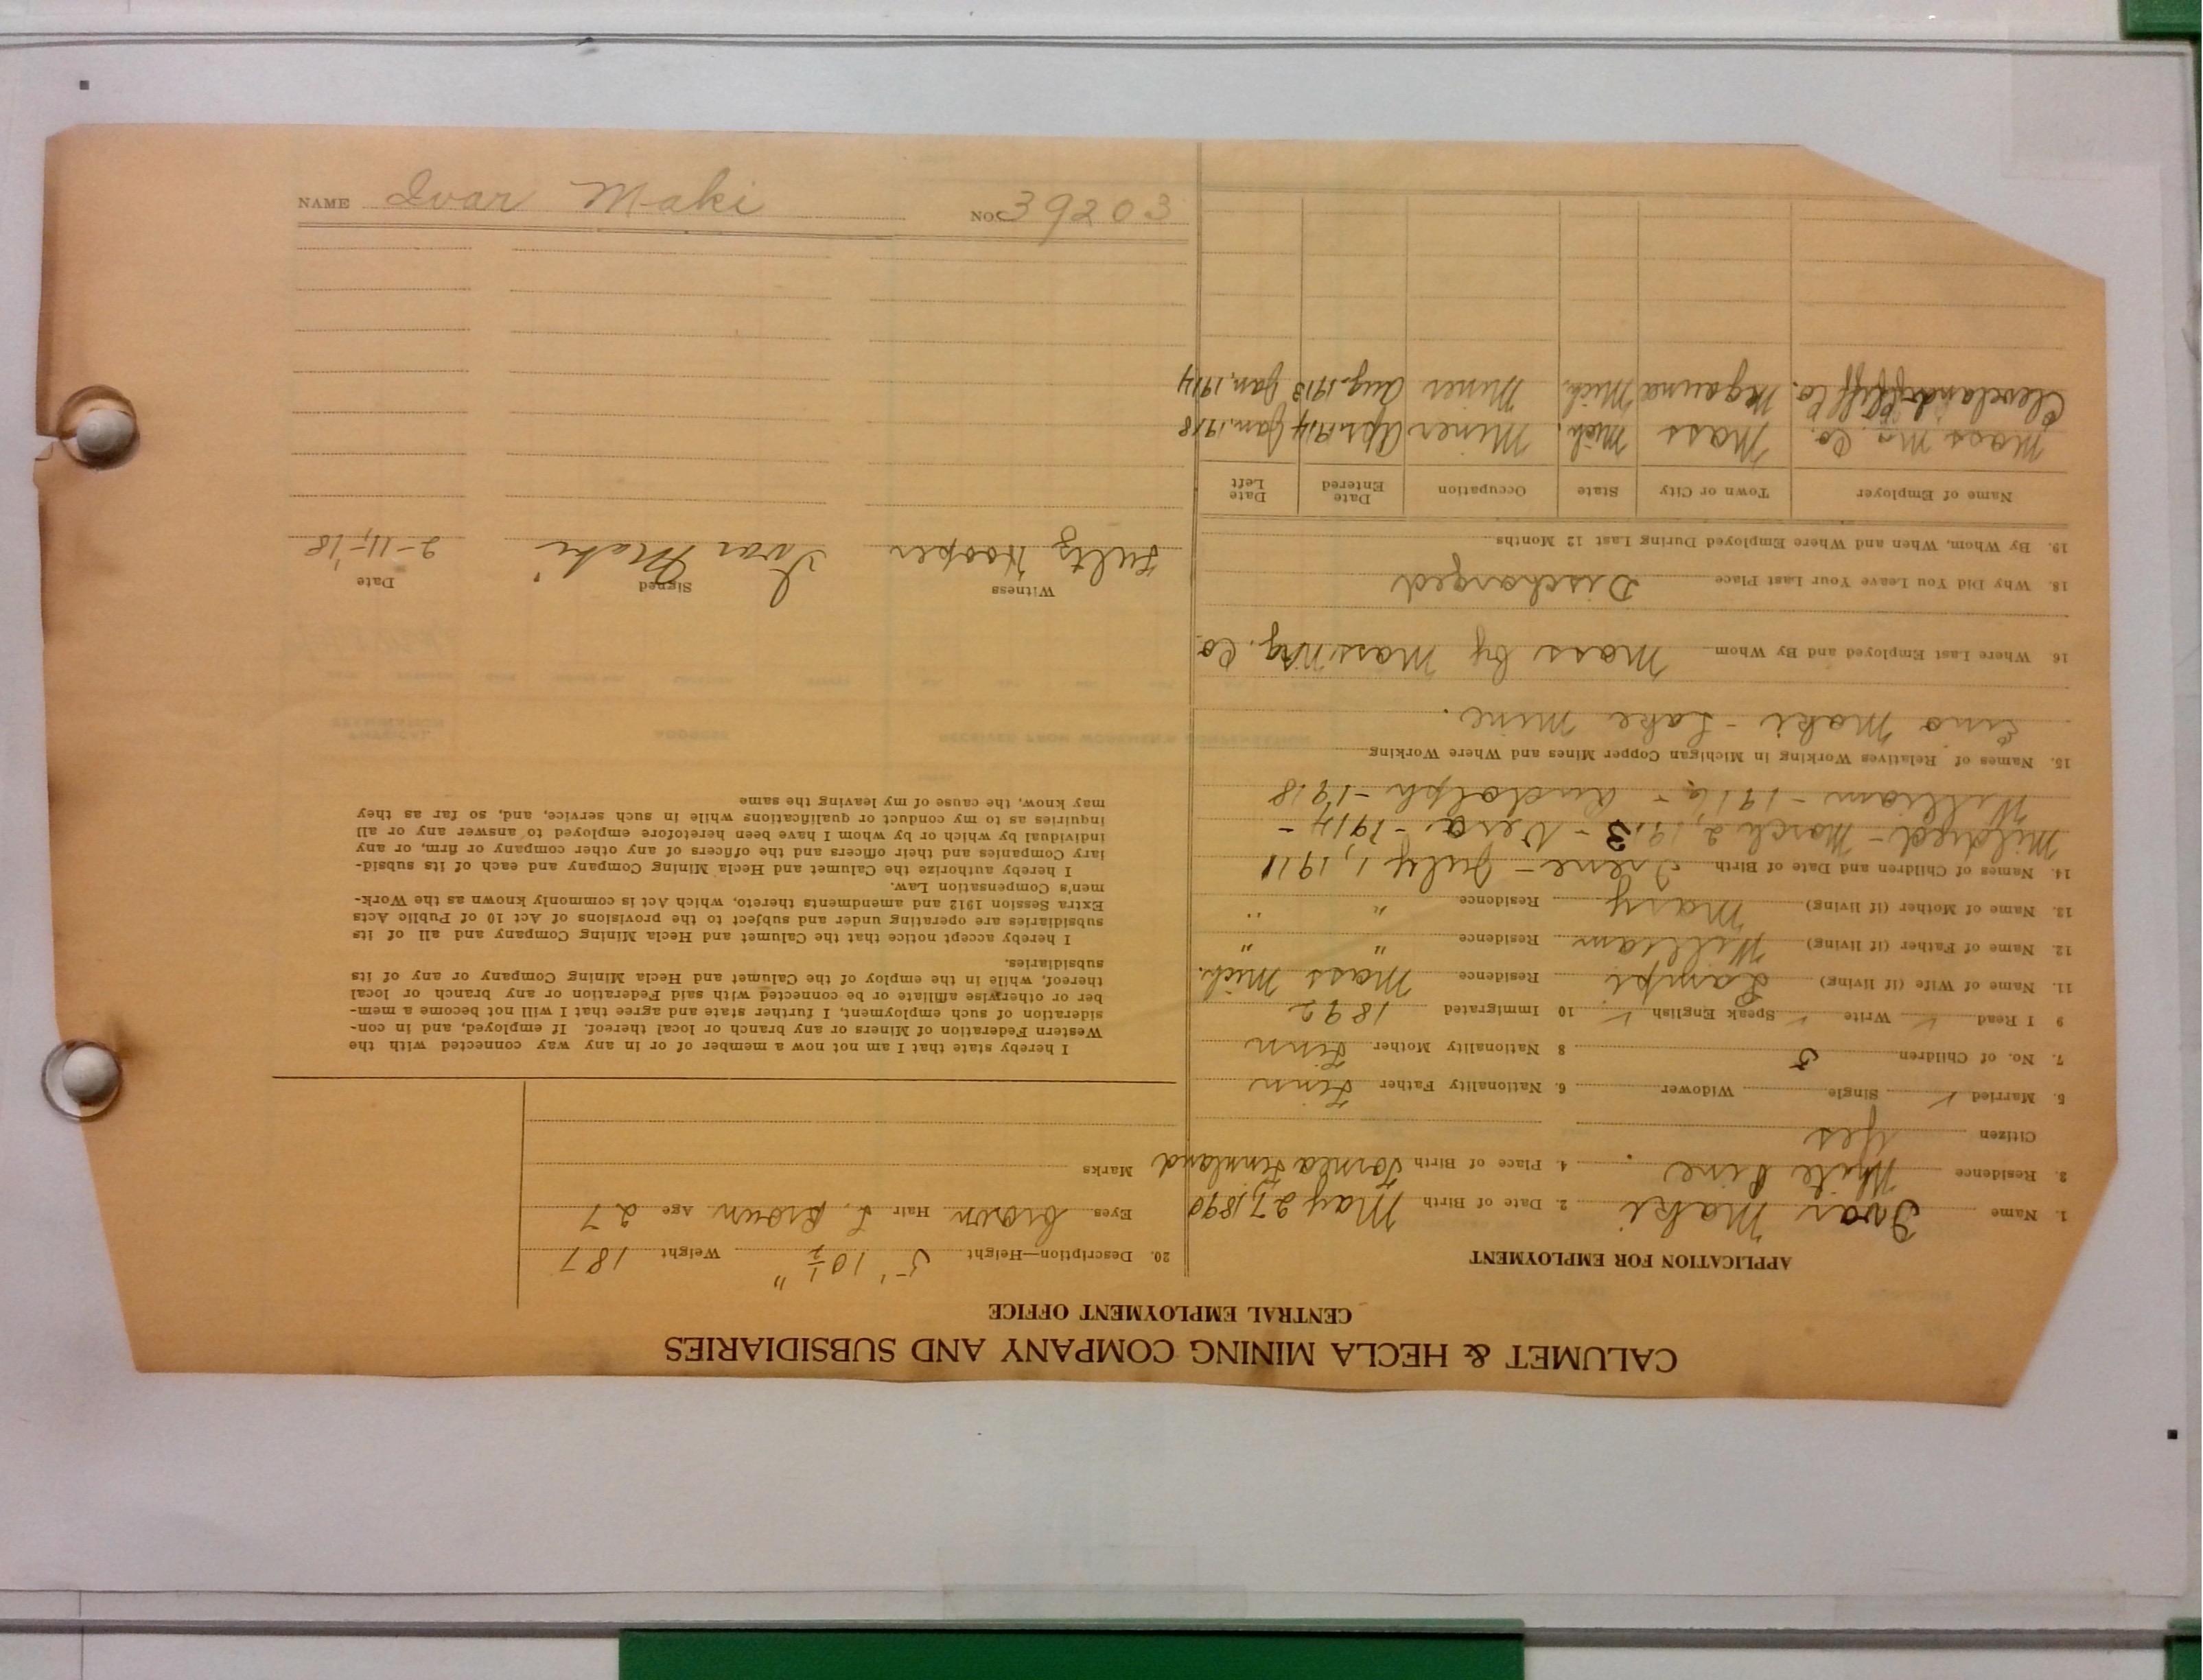 CALUMET & HECLA MINING COMPANY AND SUBSIDIARIES
CENTRAL EMPLOYMENT OFFICE
APPLICATION FOR EMPLOYMENT
1. Name Ivar Maki 2. Date of Birth May 27, 1890
3. Residence White Pine 4. Place of Birth Tornea Finnland
Citizen Yes
5. Married ✓ Single Widower 6. Nationality Father Finn
7. No. of Children 5 8 Nationality Mother Finn
9 I Read ✓ Write ✓ Speak English ✓ 10 Immigrated 1892
11. Name of Wife (if living) Lampi Residence Mass Mich.
12. Name of Father (if living) William Residence " "
13. Name of Mother (if living) Mary Residence " "
14. Names of Children and Date of Birth Irene - July 1, 1911
Mildred - March 2, 1913 - Vera - 1914 -
William - 1916 - Rudolph - 1918
15. Names of Relatives Working in Michigan Copper Mines and Where Working
Eino Maki - Lake Mine.
16. Where Last Employed and By Whom Mass by Mass Mng. Co.
18. Why Did You Leave Your Last Place Discharged
19. By Whom, When and Where Employed During Last 12 Months
Name of Employer Town or City State Occupation Date Entered Date Left
Mass Mg. Co. Mass Mich. Miner Apr. 1914 Jan. 1918
Cleveland Cliff Co. Negaunee Mich. Miner Aug. 1913 Jan. 1914
20. Description—Height 5' 10 1/2" Weight 187
Eyes Brown Hair L. Brown Age 27
Marks
I hereby state that I am not now a member of or in any way connected with the
Western Federation of Miners or any branch or local thereof. If employed, and in con-
sideration of such employment, I further state and agree that I will not become a mem-
ber or otherwise affiliate or be connected with said Federation or any branch or local
thereof, while in the employ of the Calumet and Hecla Mining Company or any of its
subsidiaries.
I hereby accept notice that the Calumet and Hecla Mining Company and all of its
subsidiaries are operating under and subject to the provisions of Act 10 of Public Acts
Extra Session 1912 and amendments thereto, which Act is commonly known as the Work-
men's Compensation Law.
I hereby authorize the Calumet and Hecla Mining Company and each of its subsid-
iary Companies and their officers and the officers of any other company or firm, or any
individual by which or by whom I have been heretofore employed to answer any or all
inquiries as to my conduct or qualifications while in such service, and, so far as they
may know, the cause of my leaving the same
Witness Signed Date
Hooper Ivar Maki 2-11-'18
NAME Ivar Maki NO. 39203